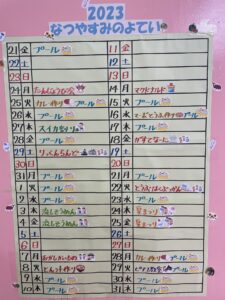 2023
なつやすみのよてい
21 金 プール
22 土
23 日
24 月
25 火 カレー作り プール
26 水 プール
27 木 スイカわり
28 金 プール
29 土
30 日
31 月 プール
1 火 プール
2 水 プール
3 木 流しそうめん
4 金 流しそうめん
5 土
6 日
7 月
8 火
9 水 プール
10 木 プール
11 金
12 土
13 日
14 月 マクドナルド
15 火 プール
16 水 プール
17 木 プール
18 金
19 土
20 日
21 月 プール
22 火 プール
23 水 プール
24 木 夏まつり
25 金 夏まつり
26 土
27 日
28 月 カレー作り プール
29 火 プール
30 水 プール
31 木 プール